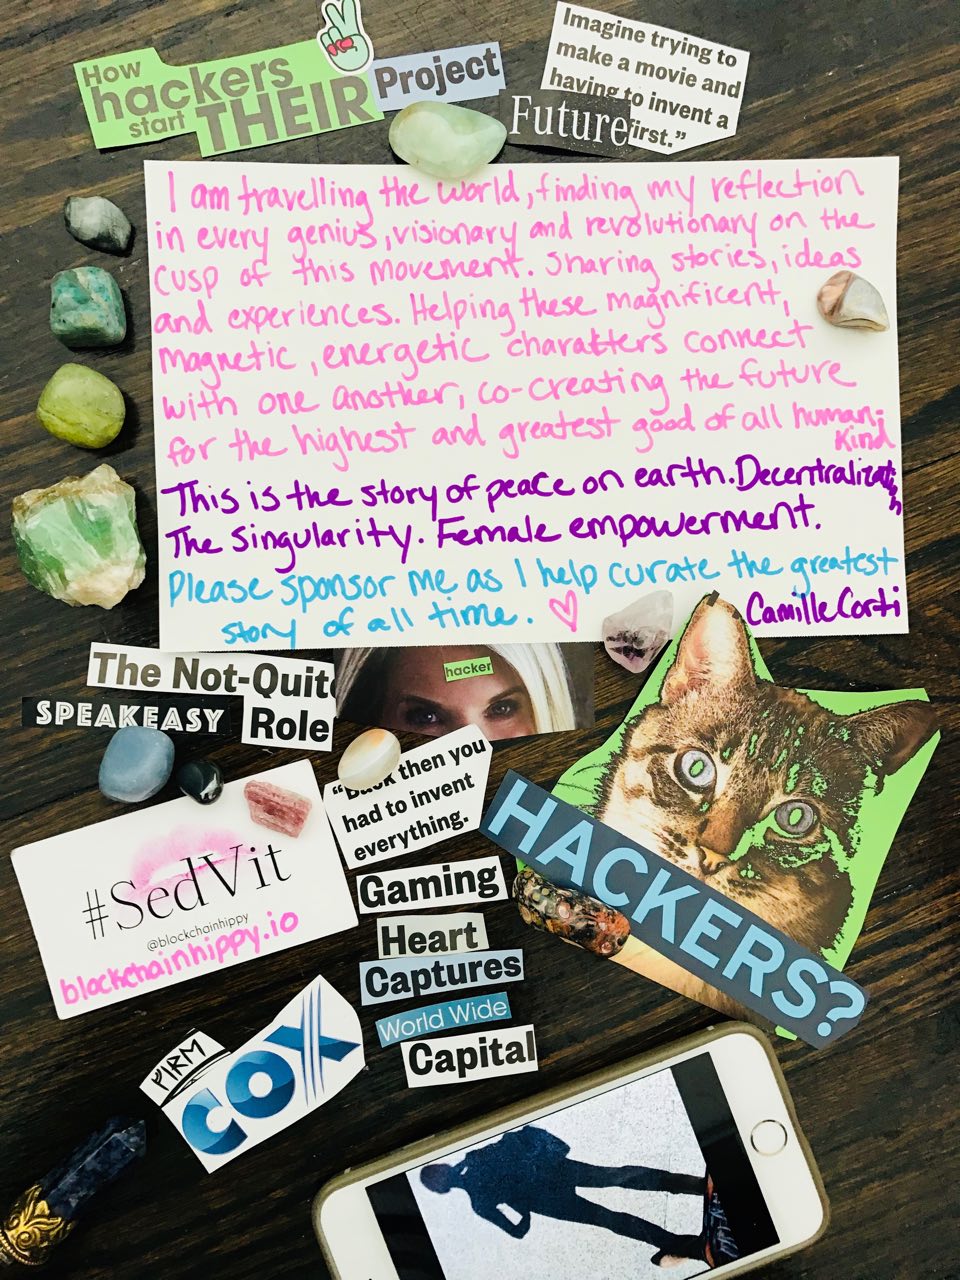 How
hackers
start THEIR
Project
Future
Imagine trying to
make a movie and
having to invent a
first.”
I am travelling the world, finding my reflection
in every genius, visionary and revolutionary on the
cusp of this movement. Sharing stories, ideas
and experiences. Helping these magnificent,
magnetic, energetic charatters connect
with one another, co-creating the future
for the highest and greatest good of all human-
kind
This is the story of peace on earth. Decentralization
The Singularity. Female empowerment.
Please sponsor me as I help curate the greatest
story of all time.
Camille Corti
The Not-Quite
SPEAKEASY
Role
hacker
“Back then you
had to invent
everything.
#SedVit
@blockchainhippy
blockchainhippy.io
Gaming
Heart
Captures
World Wide
Capital
HACKERS?
FIRM
COX